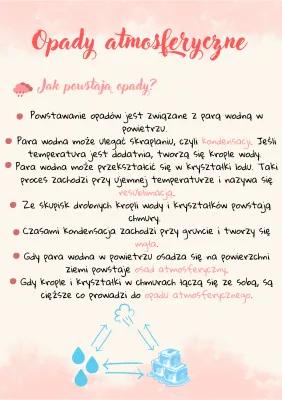 Opady atmosferyczne
Jak powstają opady?
Powstawanie opadów jest związane z parą wodną w
powietrzu.
Para wodna może ulegać skraplaniu, czyli kondensacji. Jeśli
temperatura jest dodatnia, tworzą się krople wody.
Para wodna może przekształcić się w kryształki lodu. Taki
proces zachodzi przy ujemnej temperaturze i nazywa się
resublimacją.
Ze skupisk drobnych kropli wody i kryształków powstają
chmury.
Czasami kondensacja zachodzi przy gruncie i tworzy się
mgła.
Gdy para wodna w powietrzu osadza się na powierzchni
ziemi powstaje osad atmosferyczny.
Gdy krople i kryształki w chmurach łączą się ze sobą, są
cięższe co prowadzi do opadu atmosferycznego.